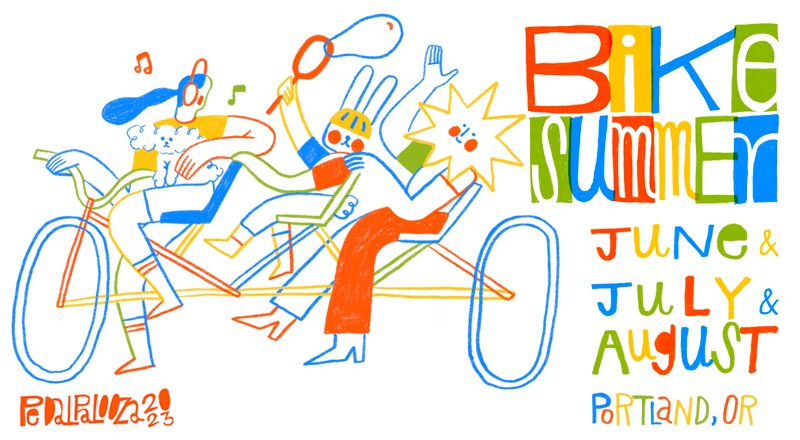 BiKe
SUmmEr
JUNe &
JULY &
AUgUST
PORTLAND, OR
PeDALPALOOZA 2023